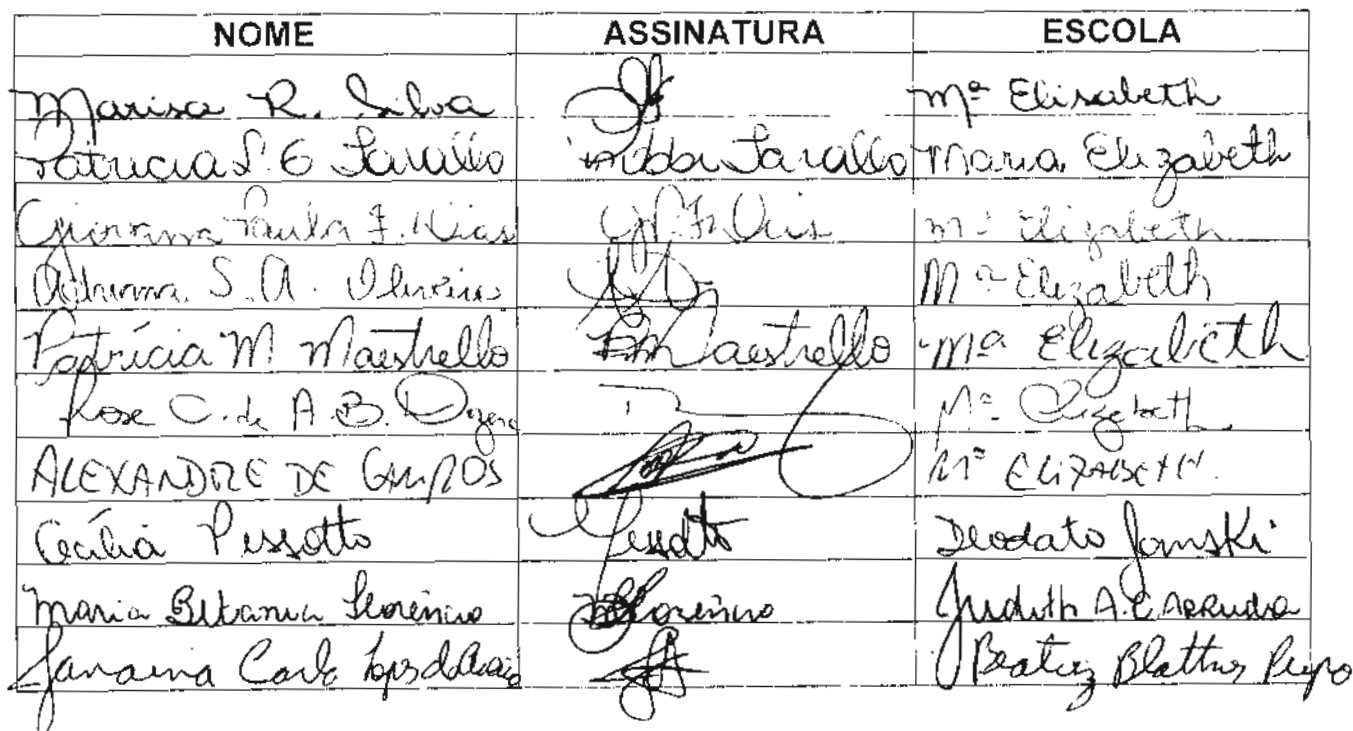 NOME ASSINATURA ESCOLA
Marisa R. Silva Mª Elisabeth
Patricia S. G Savallo Savallo Maria Elizabeth
Giovanna Paula F. Mª Elizabeth
Adriana S. A. Oliveira Mª Elizabeth
Patrícia M Maestrello PMaestrello Mª Elizabeth
Rose C. de A. B. Mª Elizabeth
ALEXANDRE DE CAMPOS Mª ELIZABETH.
Cecília Pessotto Pessotto Deodato Janski
Maria Betania Florêncio MFlorêncio Judith A. C ARRUDA
Janaina Carla Beatriz